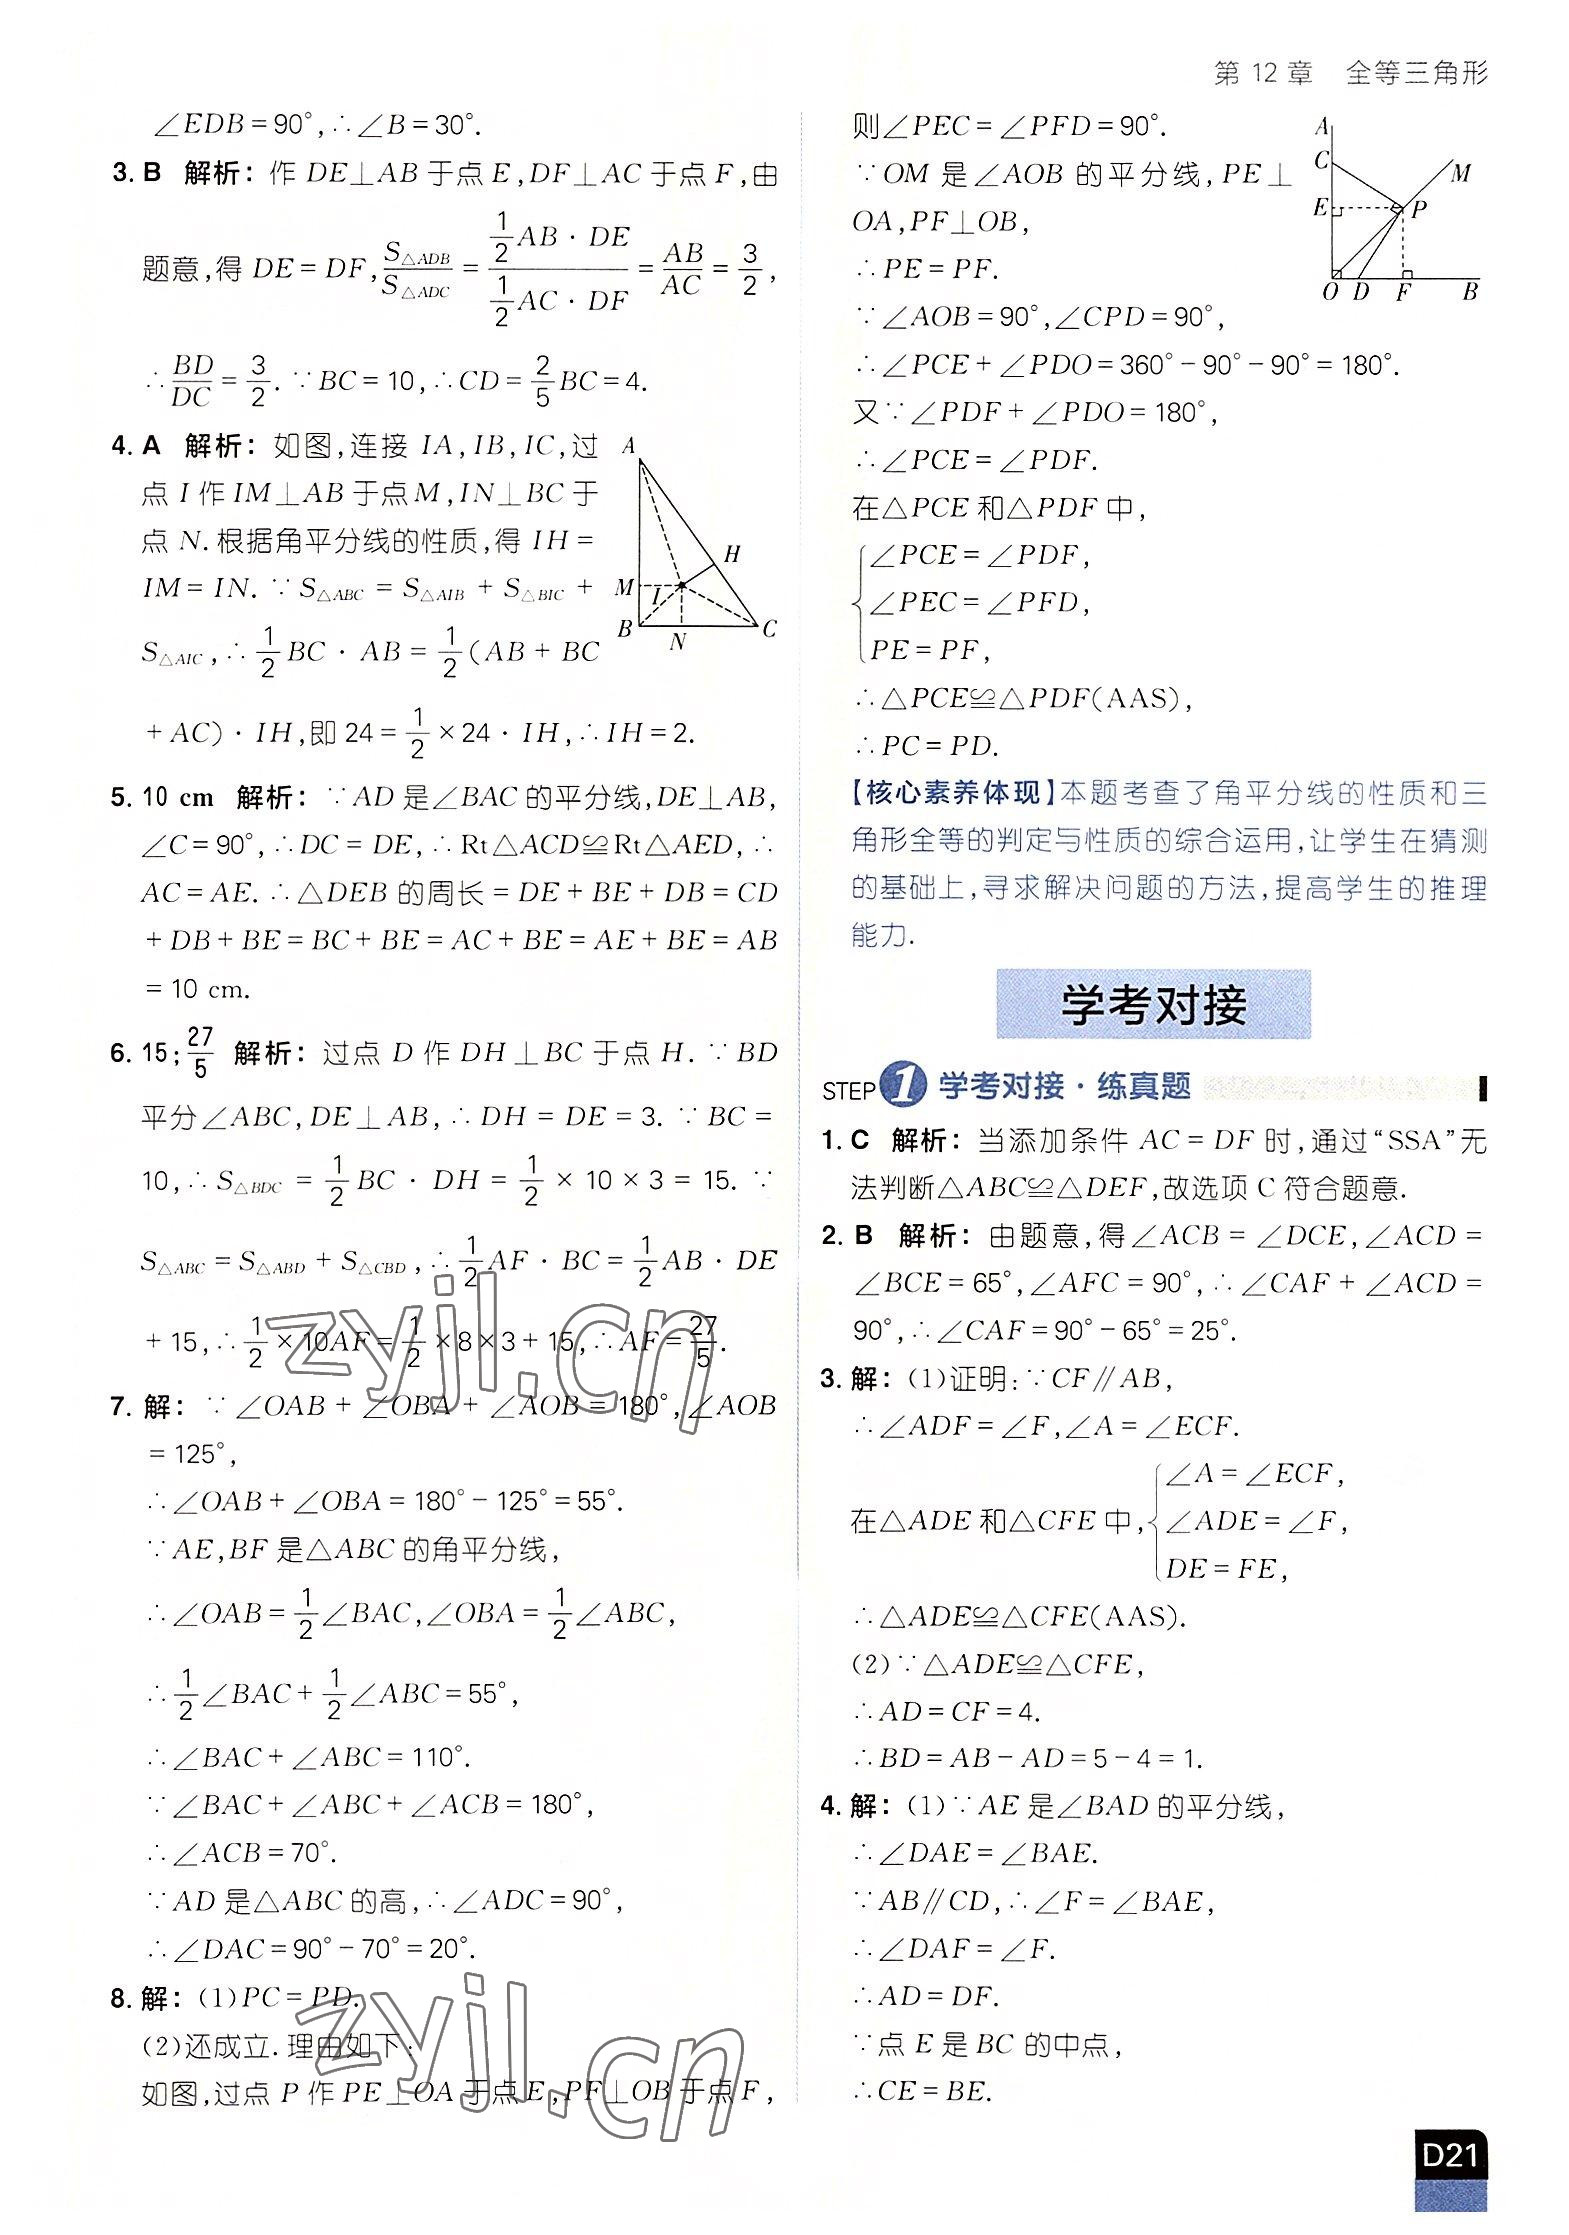 第 12 章 全等三角形
∠EDB=90°,∴∠B=30°.
3. B 解析：作 DE⊥AB 于点 E,DF⊥AC 于点 F,由
题意,得 DE=DF,S△ADB/S△ADC=(1/2 AB·DE)/(1/2 AC·DF)=AB/AC=3/2,
∴BD/DC=3/2.∵BC=10,∴CD=2/5 BC=4.
4. A 解析：如图,连接 IA,IB,IC,过
点 I 作 IM⊥AB 于点 M,IN⊥BC 于
点 N.根据角平分线的性质,得 IH=
IM=IN.∵S△ABC=S△AIB+S△BIC+
S△AIC,∴1/2 BC·AB=1/2(AB+BC
+AC)·IH,即 24=1/2×24·IH,∴IH=2.
A
H
M
I
B
N
C
5. 10 cm 解析：∵AD 是∠BAC 的平分线,DE⊥AB,
∠C=90°,∴DC=DE,∴Rt△ACD≌Rt△AED,∴
AC=AE.∴△DEB 的周长=DE+BE+DB=CD
+DB+BE=BC+BE=AC+BE=AE+BE=AB
=10 cm.
6. 15;27/5 解析：过点 D 作 DH⊥BC 于点 H.∵BD
平分∠ABC,DE⊥AB,∴DH=DE=3.∵BC=
10,∴S△BDC=1/2 BC·DH=1/2×10×3=15.∵
S△ABC=S△ABD+S△CBD,∴1/2 AF·BC=1/2 AB·DE
+15,∴1/2×10AF=1/2×8×3+15,∴AF=27/5.
7. 解：∵∠OAB+∠OBA+∠AOB=180°,∠AOB
=125°,
∴∠OAB+∠OBA=180°-125°=55°.
∵AE,BF 是△ABC 的角平分线,
∴∠OAB=1/2∠BAC,∠OBA=1/2∠ABC,
∴1/2∠BAC+1/2∠ABC=55°,
∴∠BAC+∠ABC=110°.
∵∠BAC+∠ABC+∠ACB=180°,
∴∠ACB=70°.
∵AD 是△ABC 的高,∴∠ADC=90°,
∴∠DAC=90°-70°=20°.
8. 解：(1)PC=PD.
(2)还成立.理由如下:
如图,过点 P 作 PE⊥OA 于点 E,PF⊥OB 于点 F,
zyjl.cn
zyjl.cn
则∠PEC=∠PFD=90°.
∵OM 是∠AOB 的平分线,PE⊥
OA,PF⊥OB,
∴PE=PF.
∵∠AOB=90°,∠CPD=90°,
∴∠PCE+∠PDO=360°-90°-90°=180°.
又∵∠PDF+∠PDO=180°,
∴∠PCE=∠PDF.
在△PCE 和△PDF 中,
∠PCE=∠PDF,
∠PEC=∠PFD,
PE=PF,
∴△PCE≌△PDF(AAS),
∴PC=PD.
A
C
M
E
P
O D F B
【核心素养体现】本题考查了角平分线的性质和三
角形全等的判定与性质的综合运用,让学生在猜测
的基础上,寻求解决问题的方法,提高学生的推理
能力.
学考对接
STEP 1 学考对接·练真题
1. C 解析：当添加条件 AC=DF 时,通过“SSA”无
法判断△ABC≌△DEF,故选项 C 符合题意.
2. B 解析：由题意,得∠ACB=∠DCE,∠ACD=
∠BCE=65°,∠AFC=90°,∴∠CAF+∠ACD=
90°,∴∠CAF=90°-65°=25°.
3. 解：(1)证明:∵CF∥AB,
∴∠ADF=∠F,∠A=∠ECF.
在△ADE 和△CFE 中,
∠A=∠ECF,
∠ADE=∠F,
DE=FE,
∴△ADE≌△CFE(AAS).
(2)∵△ADE≌△CFE,
∴AD=CF=4.
∴BD=AB-AD=5-4=1.
4. 解：(1)∵AE 是∠BAD 的平分线,
∴∠DAE=∠BAE.
∵AB∥CD,∴∠F=∠BAE,
∴∠DAF=∠F.
∴AD=DF.
∵点 E 是 BC 的中点,
∴CE=BE.
D21